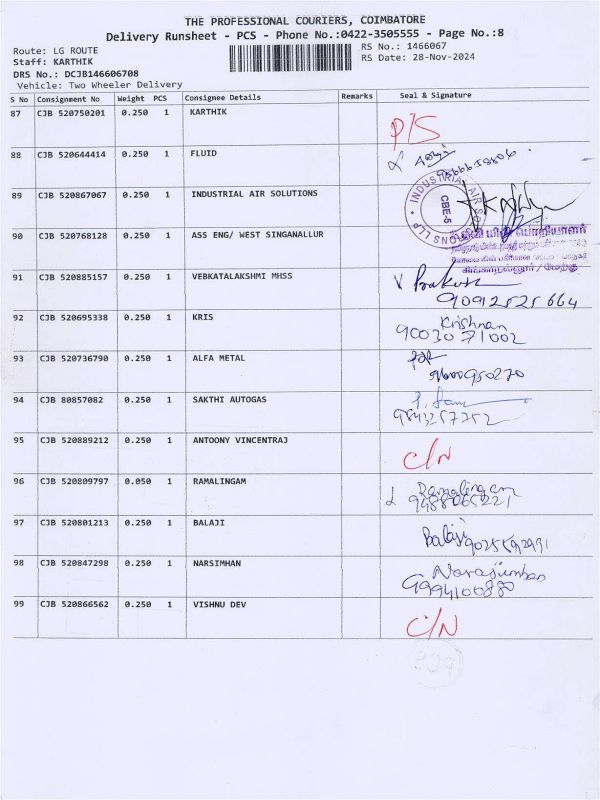 THE PROFESSIONAL COURIERS, COIMBATORE
Delivery Runsheet - PCS - Phone No.:0422-3505555 - Page No.:8
Route: LG ROUTE
RS No.: 1466067
Staff: KARTHIK
RS Date: 28-Nov-2024
DRS No.: DCJB146606708
Vehicle: Two Wheeler Delivery
S No Consignment No Weight PCS Consignee Details Remarks Seal & Signature
87 CJB 520750201 0.250 1 KARTHIK P/S
88 CJB 520644414 0.250 1 FLUID
89 CJB 520867067 0.250 1 INDUSTRIAL AIR SOLUTIONS
INDUSTRIAL AIR SOLUTIONS LLP
CBE-5
90 CJB 520768128 0.250 1 ASS ENG/ WEST SINGANALLUR
சிங்காநல்லூர் / மேற்கு
91 CJB 520885157 0.250 1 VEBKATALAKSHMI MHSS
90912525664
92 CJB 520695338 0.250 1 KRIS Krishnan
9003071002
93 CJB 520736790 0.250 1 ALFA METAL
94 CJB 80857082 0.250 1 SAKTHI AUTOGAS
9843257252
95 CJB 520889212 0.250 1 ANTOONY VINCENTRAJ C/N
96 CJB 520809797 0.050 1 RAMALINGAM Ramalingam
9488065221
97 CJB 520801213 0.250 1 BALAJI Balaji
98 CJB 520847298 0.250 1 NARSIMHAN Narasimhan
9994100880
99 CJB 520866562 0.250 1 VISHNU DEV C/N